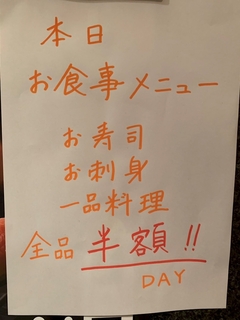 本日
お食事メニュー
お寿司
お刺身
一品料理
全品 半額!!
DAY